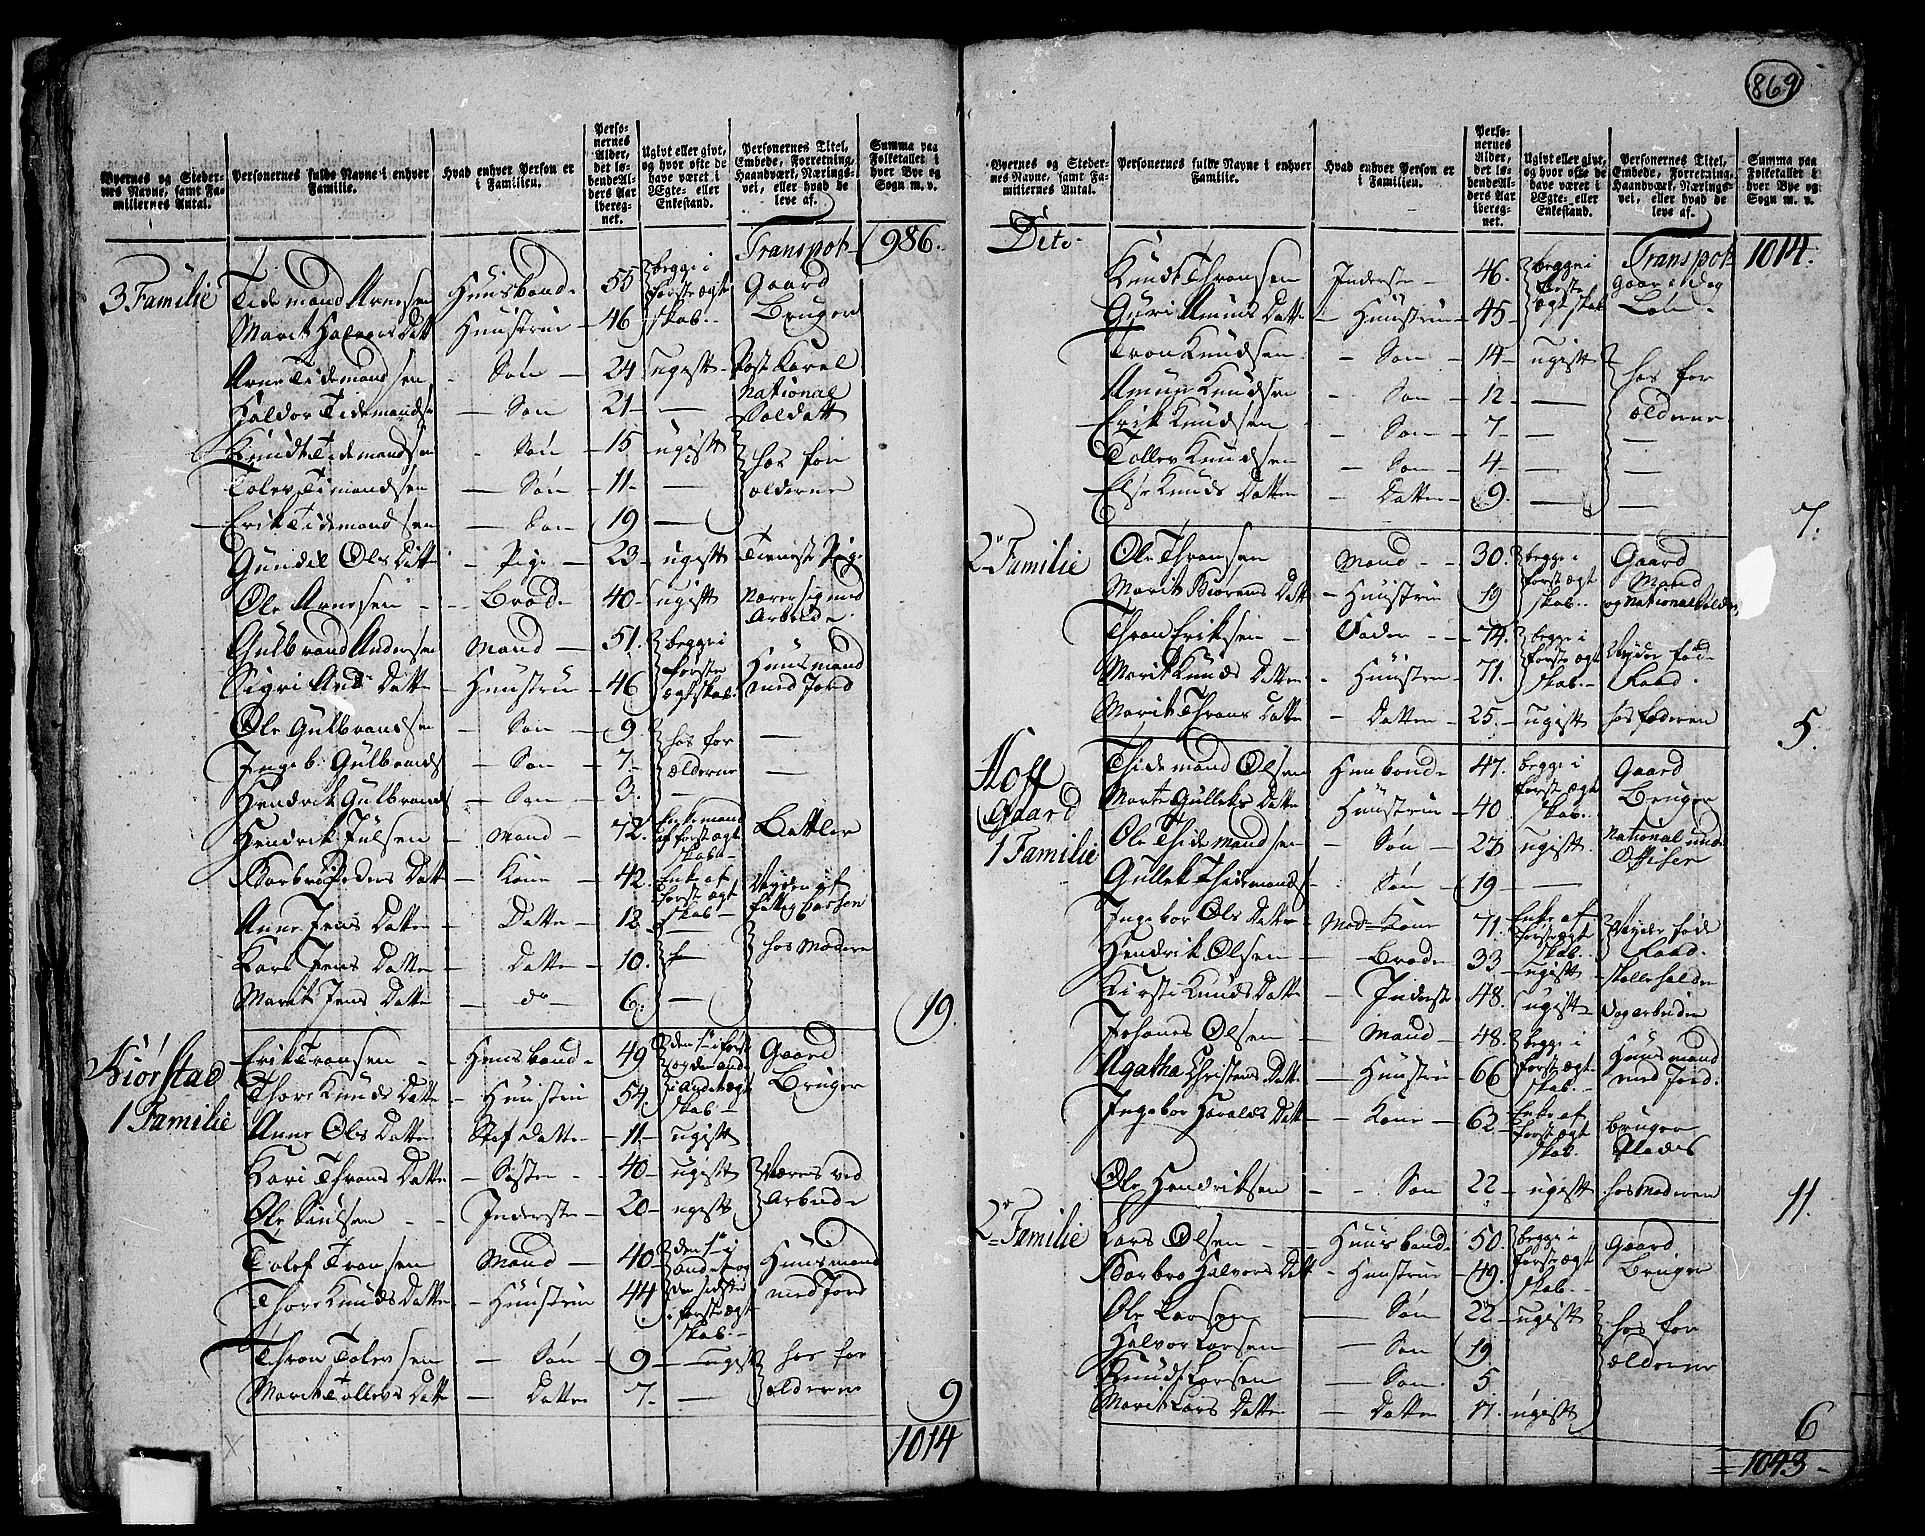 869
Byernes og Steder-
nes Navne, samt Fa-
miliernes Antal.
Personernes fulde Navne i enhver
Familie.
Hvad enhver Person er
i Familien.
Perso-
nernes
Alder,
det lø-
bende Al-
ders Aar
ibereg-
net.
Ugivt eller givt,
og hvor ofte de
have været i
Egte- eller
Enkestand.
Personernes Titel,
Embede, Forretning,
Haandværk, Nærings-
vei, eller hvad de
leve af.
Summa paa
Folketallet i
hver Bye og
Sogn m. v.
Transpot 986.
3 Familie Tidemand Arnesen Huusbond 55 begge i første ægteskab Gaard Bruger
Marit Halvors Datt Huustrue 46
Arne Tidemandsen Søn 24 ugift
Haldor Tidemandse Søn 21 — National Soldatt
Knudt Tidemandsen Søn 15 ugift hos forælderne
Tolev Timandsen Søn 11 —
Erik Tidemandsen Søn 19 —
Gundil Ols Datt Pige 23 ugift Tieneste Pige
Ole Arnesen Brode 40 ugift Nærer sig med Arbeide
Gulbrand Andersen Mand 51 begge i første ægteskab Huusmand med Jord
Sigri And: Datte Huustrue 46
Ole Gulbrandsen Søn 9 hos forælderne —
Ingeb: Gulbrands Søn 7 —
Hendrik Gulbrands Søn 3 —
Hendrik Julsen Mand 72 Enkemand af første ægteskab Bettler
Barbro Peders Datt Kone 42 Enke af første ægteskab Nyder af fattigkassen
Anne Jens Datte Datte 12 — hos Moderen
Kari Jens Datte Datte 10
Marit Jens Datte do 6 —
19.
Kiørstad Erik Tronsen Huusbond 49 Gaard Bruger
1 Familie Thore Knuds Datte Huustrue 54
Anne Ols Datte Stif Datte 11 ugift
Kari Throns Datte Søster 40 ugift Næres ved Arbeide
Ole Knudsen Inderste 20 ugift
Tolef Tronsen Mand 40 Huusmand med Jord
Thore Knuds Datte Huustrue 44
Thron Tolevsen Søn 9 ugift hos forælderne
Marit Tollevs Datt Datter 7 —
9
1014
Byernes og Steder-
nes Navne, samt Fa-
miliernes Antal.
Personernes fulde Navne i enhver
Familie.
Hvad enhver Person er
i Familien.
Perso-
nernes
Alder,
det lø-
bende Al-
ders Aar
ibereg-
net.
Ugivt eller givt,
og hvor ofte de
have været i
Egte- eller
Enkestand.
Personernes Titel,
Embede, Forretning,
Haandværk, Nærings-
vei, eller hvad de
leve af.
Summa paa
Folketallet i
hver Bye og
Sogn m. v.
Dito Transpot 1014.
Knudt Thronsen Inderste 46 begge i første ægteskab
Guri Amuns Datte Huustrue 45
Tron Knudsen Søn 14 ugift hos forælderne
Amun Knudsen Søn 12 —
Erik Knudsen Søn 7 —
Tollev Knudsen Søn 4 —
Else Knuds Datter Datter 9 —
7.
2 Familie Ole Thronsen Mand 30 begge i første ægteskab Gaard Mand og National Soldat
Marit Biørens Datt Huustrue 19
Thron Eriksen Fader 74 begge i første ægteskab Nyder føderaad
Marit Knuds Datter Huustrue 71
Marit Throns Datte Datter 25 ugift hos faderen
5.
Hoff Gaard Thidemand Olsen Huusbonde 47 begge i første ægteskab Gaard Bruger
Marte Gulleks Datte Huustrue 40
1 Familie Ole Thidemandsen Søn 23 ugift National und: Officer
Gullek Thidemands Søn 19 —
Ingebor Ols Datte Mod= Kone 71 Enke af første ægteskab Nyder føderaad
Hendrik Olsen Brode 33 ugift
Kirsti Knuds Datte Inderst 48 ugift
Johanes Olsen Mand 48 begge i første ægteskab Huusmand med Jord
Agatha Christens Datte Huustrue 66
Ingebor Haralds Datt Kone 62 Enke af første ægteskab bruger Pladds
Ole Hendriksen Søn 22 ugift hos Moderen
11.
2 Familie Lars Olsen Huusbond 50 begge i første ægteskab Gaard Bruger
Barbro Halvors Datt Huustrue 49
Ole Larsen Søn 22 ugift hos forælderne
Halvor Larsen Søn 19
Knud Larsen Søn 5
Marit Lars Datte Datter 17 ugift
6
1043